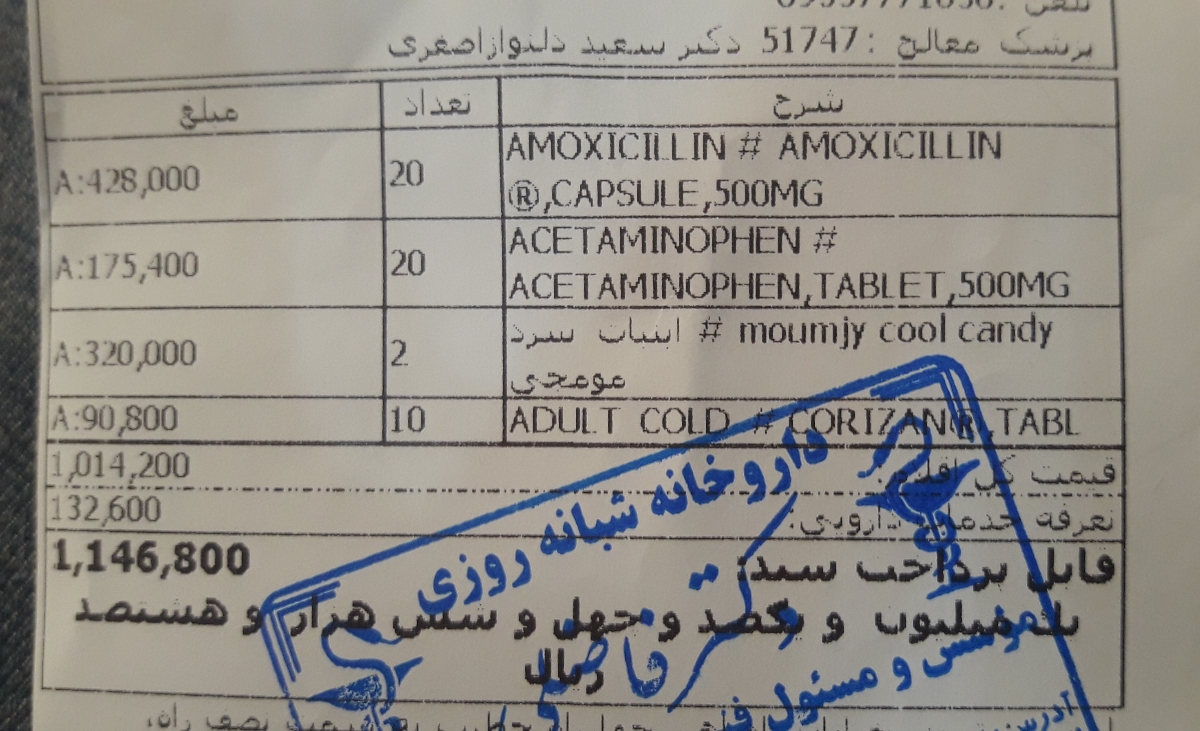 پزشک معالج :51747 دکتر سعید دلنوازاصغری
شرح تعداد مبلغ
AMOXICILLIN # AMOXICILLIN
®,CAPSULE,500MG 20 A:428,000
ACETAMINOPHEN #
ACETAMINOPHEN,TABLET,500MG 20 A:175,400
moumjy cool candy # ابنبات سرد
مومجی 2 A:320,000
ADULT COLD # CORIZAN®,TABL 10 A:90,800
قیمت کل اقلام: 1,014,200
تعرفه خدمات دارویی: 132,600
قابل پرداخت سند: 1,146,800
یک میلیون و یکصد و چهل و شش هزار و هشتصد
ریال
داروخانه شبانه روزی
دکتر
موسس و مسئول فنی
آدرس: